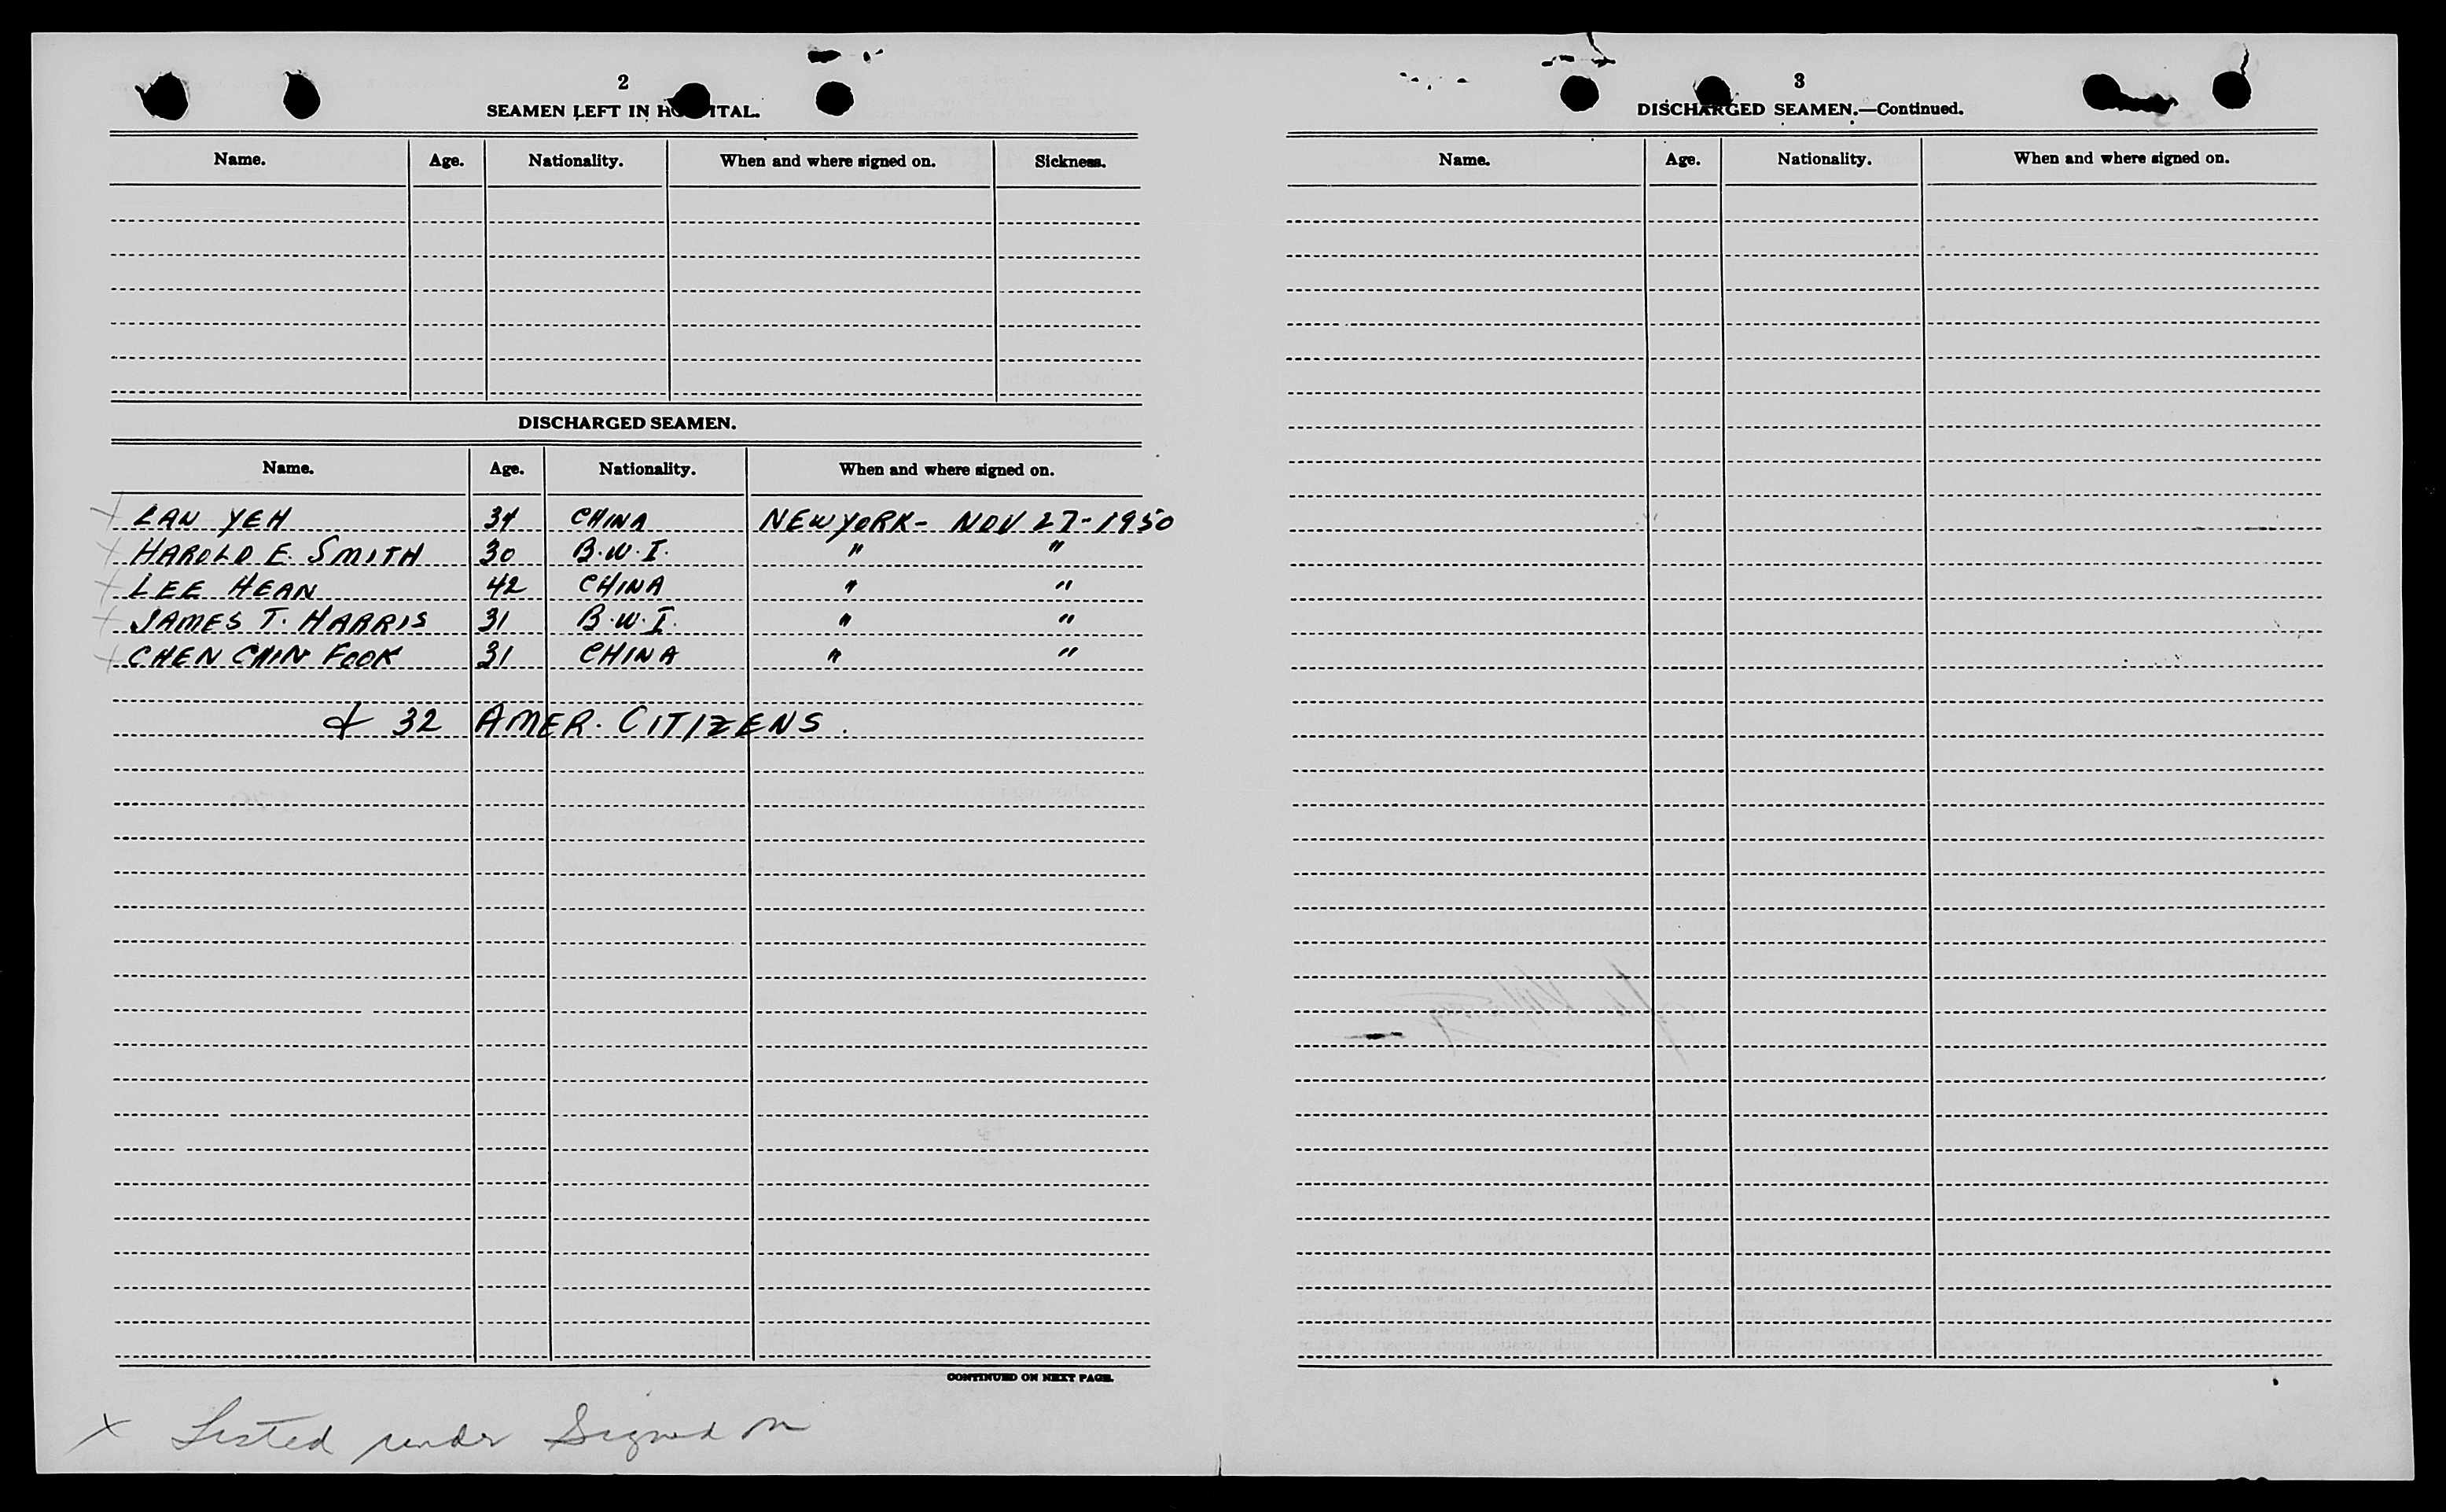 2
SEAMEN LEFT IN HOSPITAL.
Name. Age. Nationality. When and where signed on. Sickness.
DISCHARGED SEAMEN.
Name. Age. Nationality. When and where signed on.
LAN YEH 34 CHINA NEW YORK - NOV 27 - 1950
HAROLD E. SMITH 30 B.W.I. " "
LEE HEAN 42 CHINA " "
JAMES T. HARRIS 31 B.W.I. " "
CHEN CHIN FOOK 31 CHINA " "
& 32 AMER. CITIZENS.
CONTINUED ON NEXT PAGE.
x Listed under Signed on
3
DISCHARGED SEAMEN.—Continued.
Name. Age. Nationality. When and where signed on.